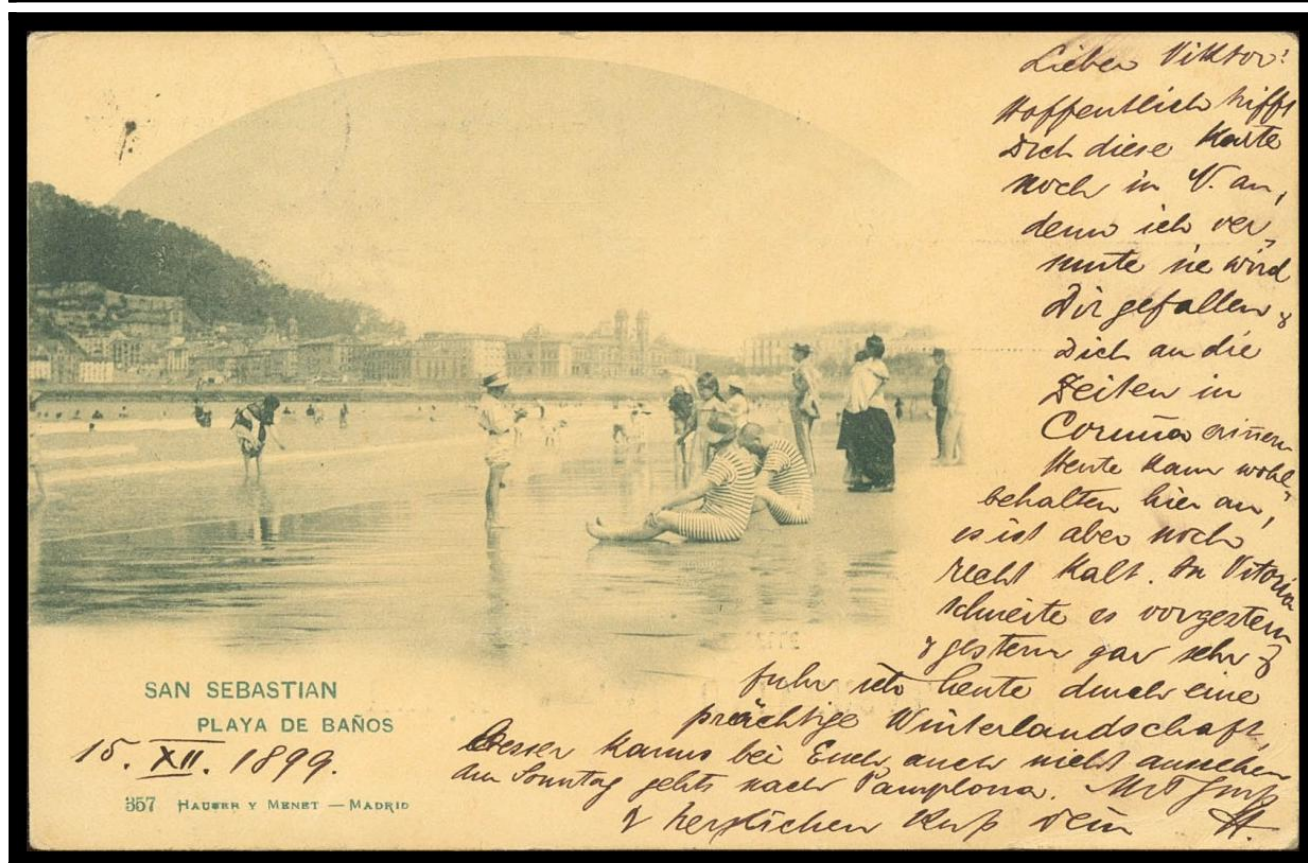 Lieber Viktor!
Hoffentlich trifft
Dich diese Karte
noch in V. an,
denn ich ver-
mute sie wird
Dir gefallen &
Dich an die
Zeiten in
Coruña erinnern
Heute kam wohl-
behalten hier an,
es ist aber noch
recht kalt. In Vitoria
schneite es vorgestern
& gestern gar sehr &
fuhr ich heute durch eine
prächtige Winterlandschaft,
Besser kanns bei Euch auch nicht aussehen
am Sonntag gehts nach Pamplona. Mit Gruß
& herzlichen Kuß Dein H.
SAN SEBASTIAN
PLAYA DE BAÑOS
15. XII. 1899.
357 HAUSER Y MENET — MADRID